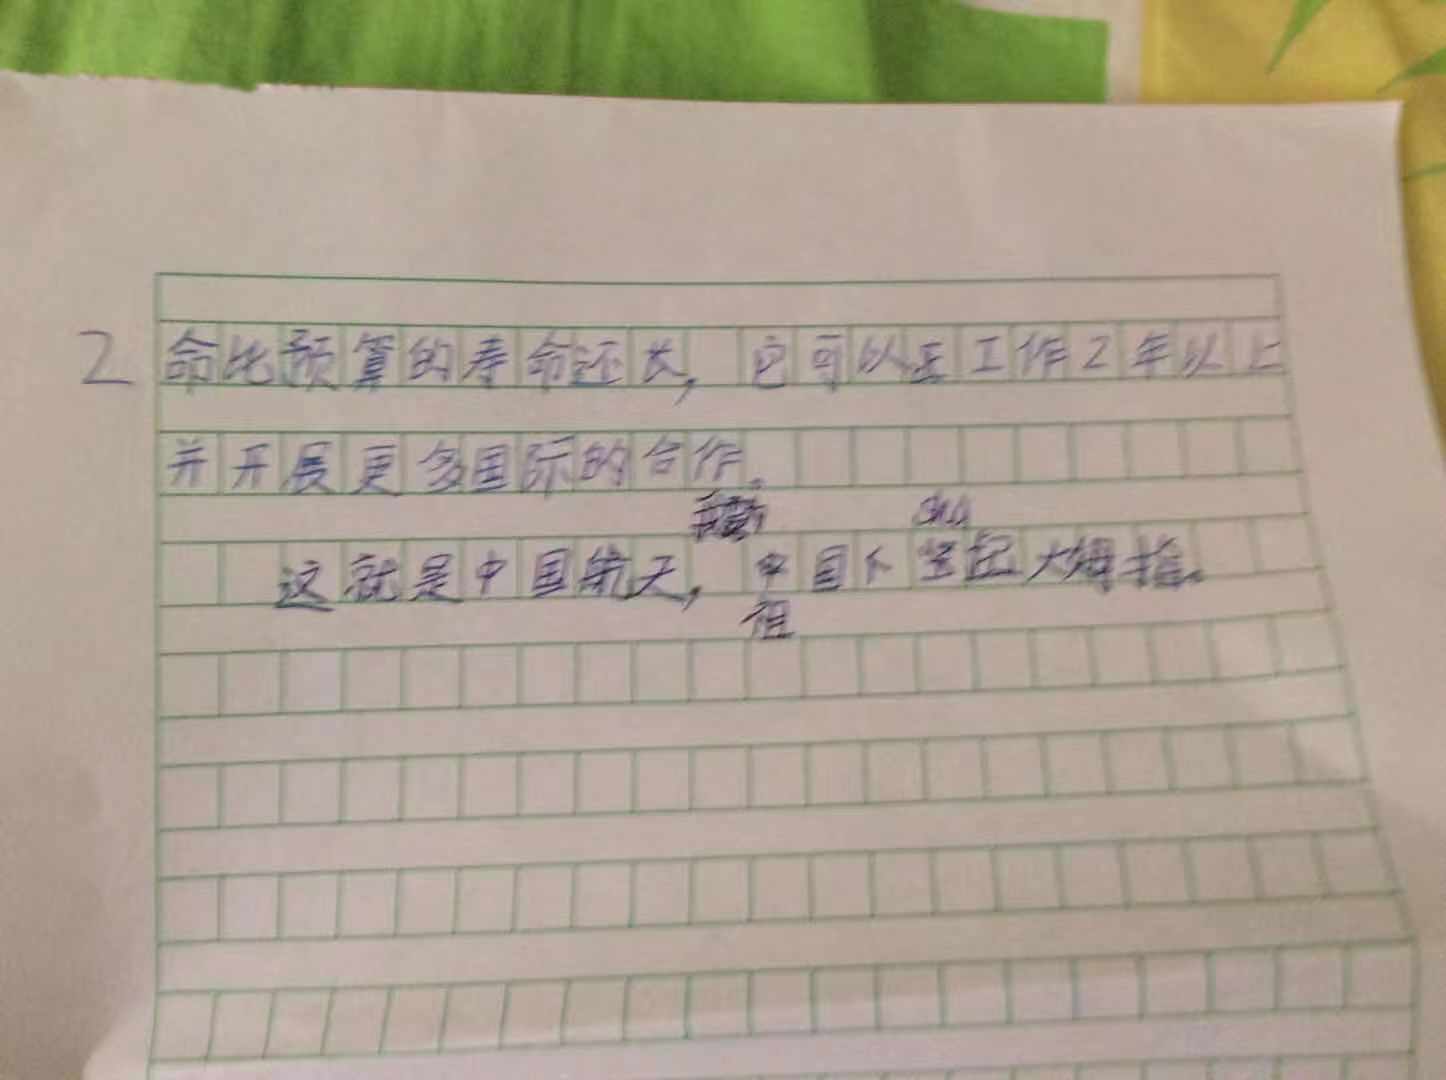 2 命比预算的寿命还长,它可以正工作2年以上
并开展更多国际的合作。
shù
这就是中国航天,中国人竖起大姆指。
祖